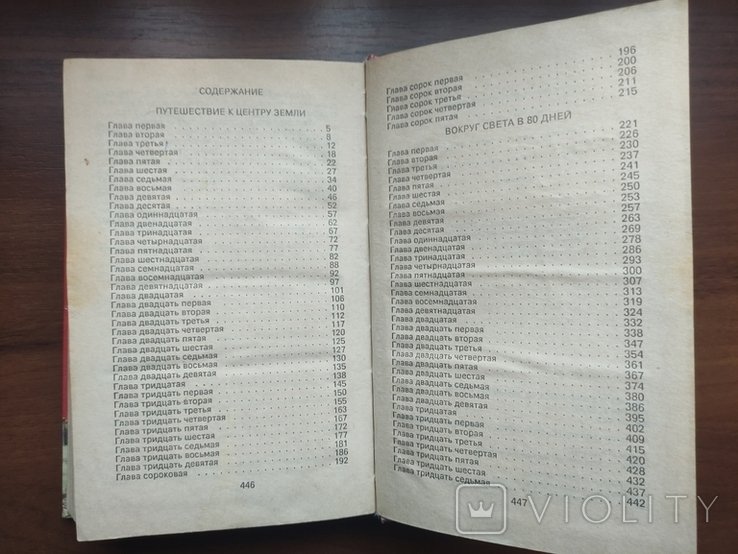 СОДЕРЖАНИЕ
ПУТЕШЕСТВИЕ К ЦЕНТРУ ЗЕМЛИ
Глава первая 5
Глава вторая 8
Глава третья 12
Глава четвертая 18
Глава пятая 22
Глава шестая 27
Глава седьмая 34
Глава восьмая 40
Глава девятая 46
Глава десятая 52
Глава одиннадцатая 57
Глава двенадцатая 62
Глава тринадцатая 67
Глава четырнадцатая 72
Глава пятнадцатая 77
Глава шестнадцатая 82
Глава семнадцатая 88
Глава восемнадцатая 92
Глава девятнадцатая 97
Глава двадцатая 101
Глава двадцать первая 106
Глава двадцать вторая 110
Глава двадцать третья 112
Глава двадцать четвертая 117
Глава двадцать пятая 120
Глава двадцать шестая 125
Глава двадцать седьмая 127
Глава двадцать восьмая 130
Глава двадцать девятая 135
Глава тридцатая 138
Глава тридцать первая 145
Глава тридцать вторая 150
Глава тридцать третья 155
Глава тридцать четвертая 163
Глава тридцать пятая 167
Глава тридцать шестая 172
Глава тридцать седьмая 177
Глава тридцать восьмая 181
Глава тридцать девятая 186
Глава сороковая 192
446
Глава сорок первая 196
Глава сорок вторая 200
Глава сорок третья 206
Глава сорок четвертая 211
Глава сорок пятая 215
ВОКРУГ СВЕТА В 80 ДНЕЙ
Глава первая 221
Глава вторая 226
Глава третья 230
Глава четвертая 237
Глава пятая 241
Глава шестая 245
Глава седьмая 250
Глава восьмая 253
Глава девятая 257
Глава десятая 263
Глава одиннадцатая 269
Глава двенадцатая 278
Глава тринадцатая 286
Глава четырнадцатая 293
Глава пятнадцатая 300
Глава шестнадцатая 307
Глава семнадцатая 313
Глава восемнадцатая 319
Глава девятнадцатая 324
Глава двадцатая 332
Глава двадцать первая 338
Глава двадцать вторая 347
Глава двадцать третья 354
Глава двадцать четвертая 361
Глава двадцать пятая 367
Глава двадцать шестая 374
Глава двадцать седьмая 380
Глава двадцать восьмая 386
Глава двадцать девятая 395
Глава тридцатая 402
Глава тридцать первая 409
Глава тридцать вторая 415
Глава тридцать третья 420
Глава тридцать четвертая 428
Глава тридцать пятая 432
Глава тридцать шестая 437
Глава тридцать седьмая 442
447
VIOLITY